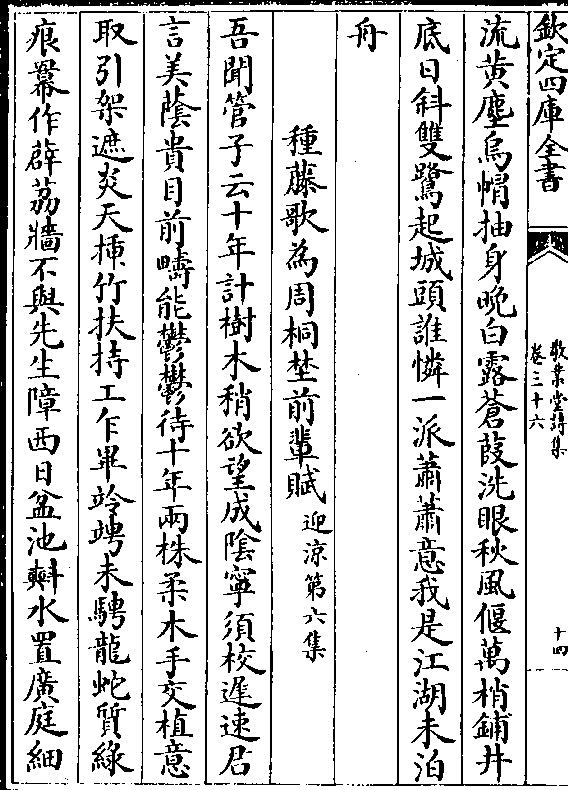 欽定四庫全書
敬業堂詩集
卷三十六
十四
流黃塵烏帽抽身晚白露蒼葭洗眼秋風偃萬梢鋪井
底日斜雙鷺起城頭誰憐一派蕭蕭意我是江湖未泊
舟
種藤歌為周桐埜前輩賦 迎涼第六集
吾聞管子云十年計樹木稍欲望成陰寧須校遲速君
言美蔭貴目前疇能鬱鬱待十年兩株柔木手交植意
取引架遮炎天楝竹扶持工乍畢竛竮未騁龍蛇質綠
痕羃作薜荔牆不與先生障西日盆池㪺水置廣庭細